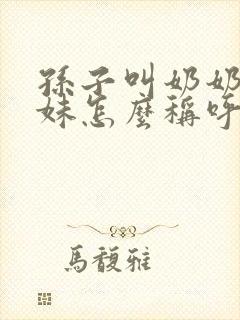 孫子叫奶奶
妹怎麼稱呼
馬馥雅